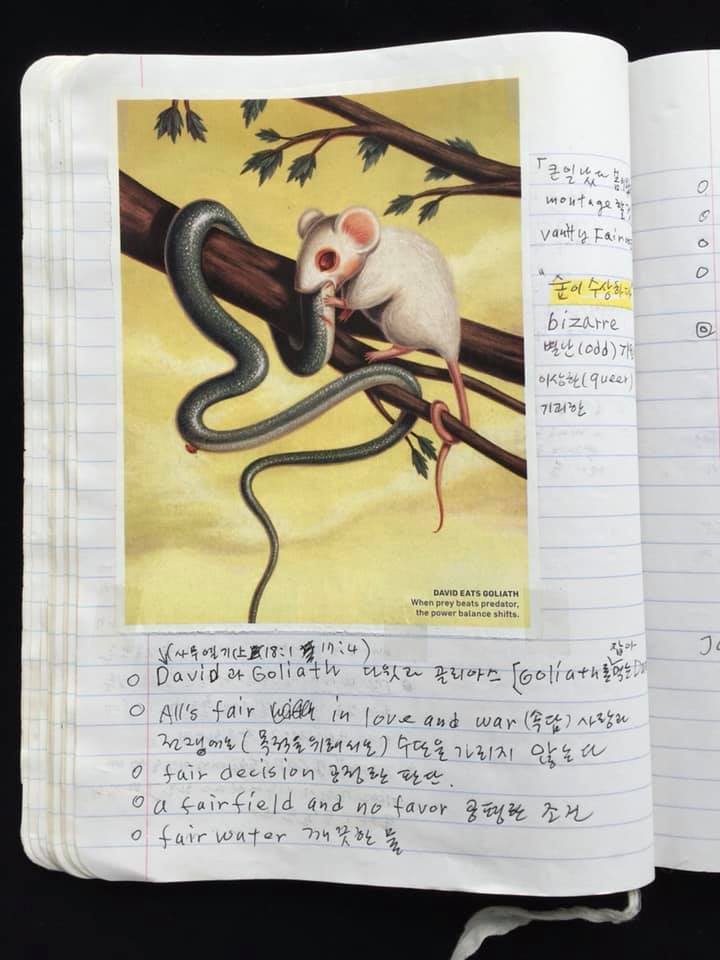 DAVID EATS GOLIATH
When prey beats predator,
the power balance shifts.
「큰일 났다 봄이
montage
vanity Fair
"숲이 수상하다
bizarre
별난(odd)
이상한(queer)
기괴한
18:1 17:4)
잡아
David과 Goliath 다윗과 골리아스 [Goliath를 먹는
All's fair in love and war (속담) 사랑과
전쟁에는 (목적을 위해서는) 수단을 가리지 않는다
fair decision 공정한 판단.
a fairfield and no favor 공평한 조건
fair water 깨끗한 물